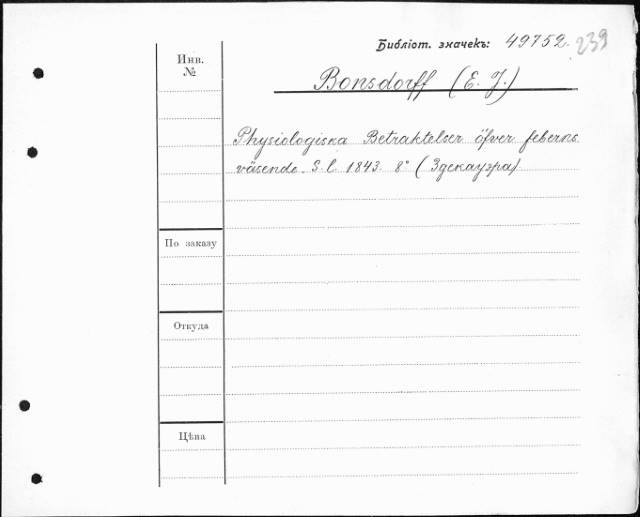 Библіот. значекъ: 49752. 239
Инв.
№
Bonsdorff (E. J.)
Physiologiska Betraktelser öfver feberns
väsende. S. l. 1843. 8° (Здекауэра)
По заказу
Откуда
Цѣна